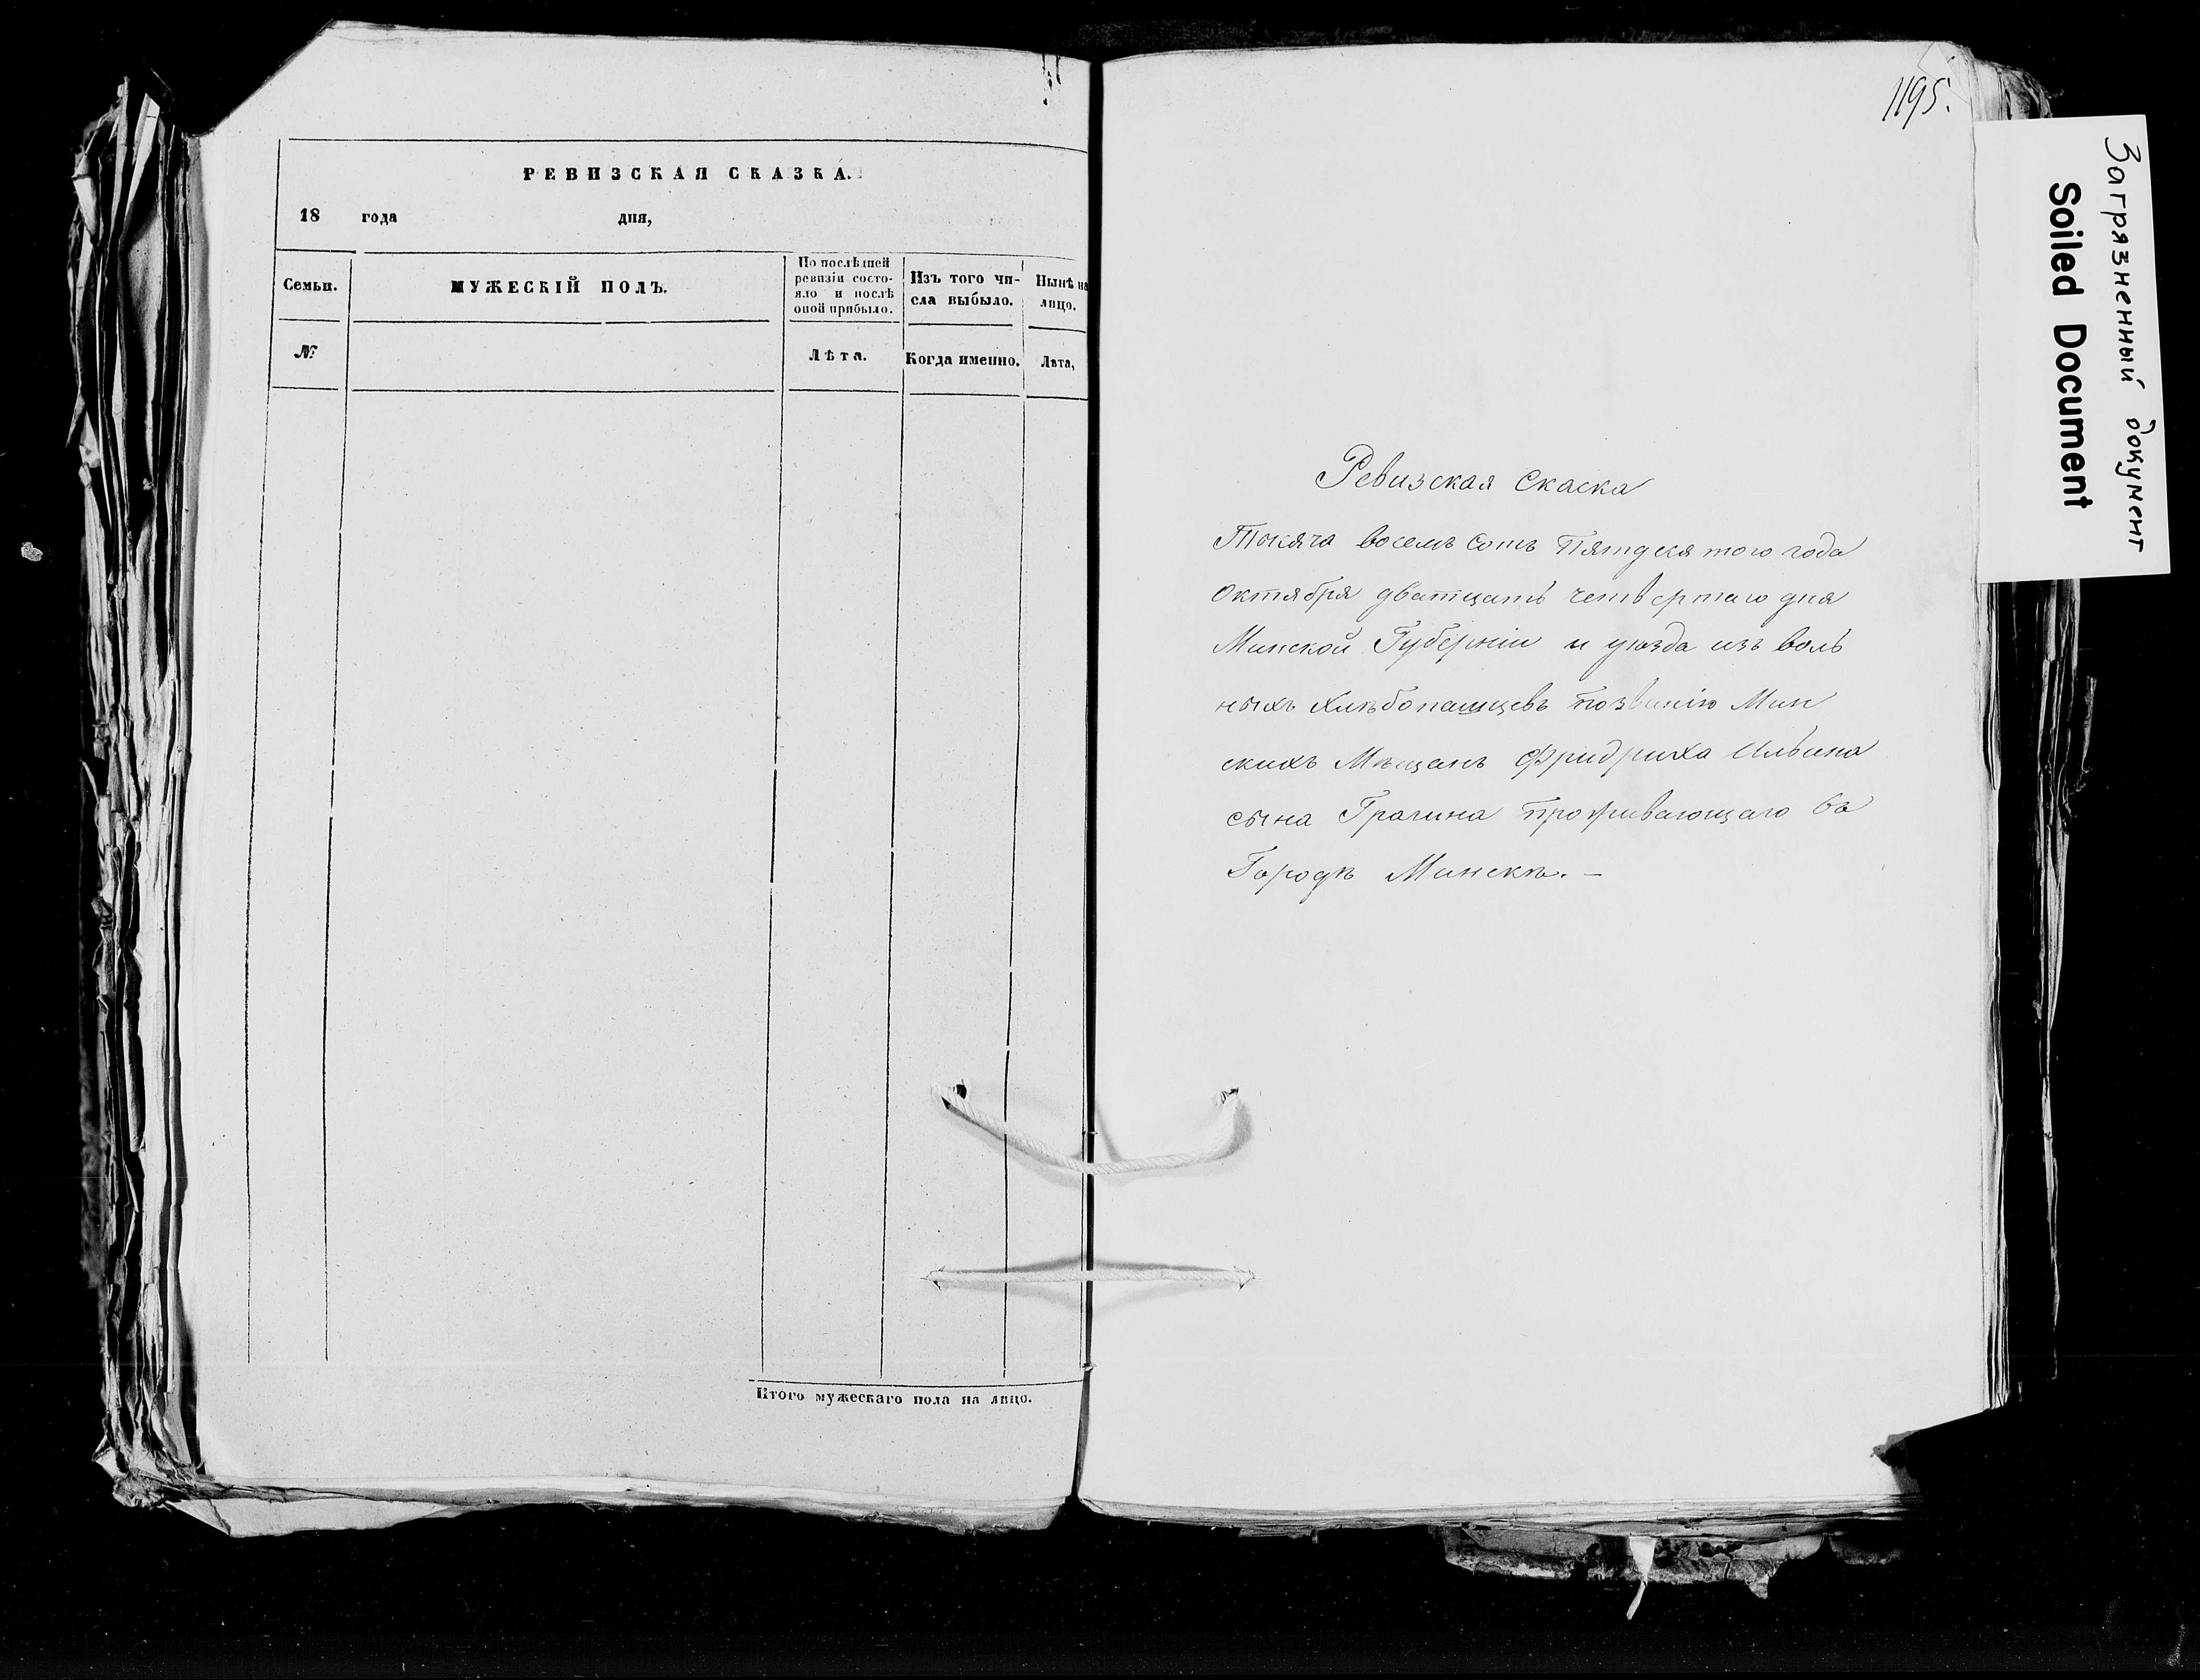 РЕВИЗСКАЯ СКАЗКА.
18 года дня,
Семьи.
МУЖЕСКІЙ ПОЛЪ.
По послѣдней
ревизіи состо-
яло и послѣ
оной прибыло.
Изъ того чи-
сла выбыло.
Нынѣ на
лицо.
№
Лѣта.
Когда именно.
Лѣта,
Итого мужескаго пола на лицо.
1195.
Ревизская Скаска
Тысяча восемь сотъ Пятдесятого года
Октября дватцать четвертаго дня
Минской Губерніи и уѣзда изъ воль
ныхъ хлѣбопашцевъ позванію Мин
скихъ Мѣщанъ Фридриха Ильина
сына проживающаго въ
Городѣ Минскѣ. —
Загрязненный документ
Soiled Document